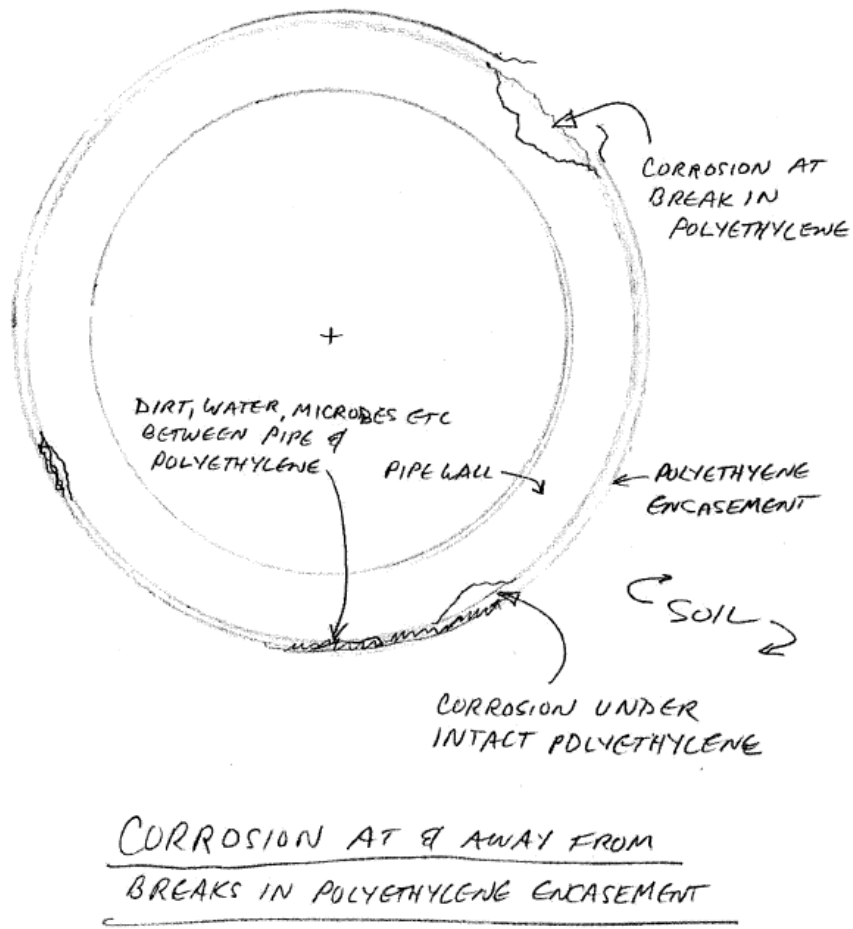 CORROSION AT
BREAK IN
POLYETHYLENE
DIRT, WATER, MICROBES ETC
BETWEEN PIPE &
POLYETHYLENE
PIPE WALL
POLYETHYENE
ENCASEMENT
SOIL
CORROSION UNDER
INTACT POLYETHYLENE
CORROSION AT & AWAY FROM
BREAKS IN POLYETHYLENE ENCASEMENT